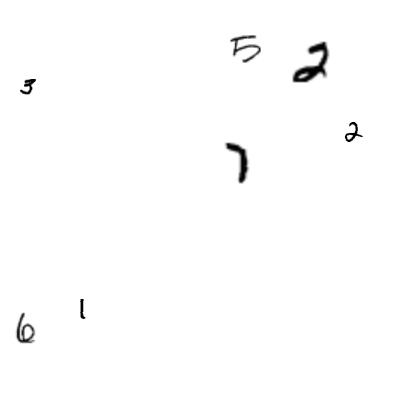 5 2
3
2
7
1
6